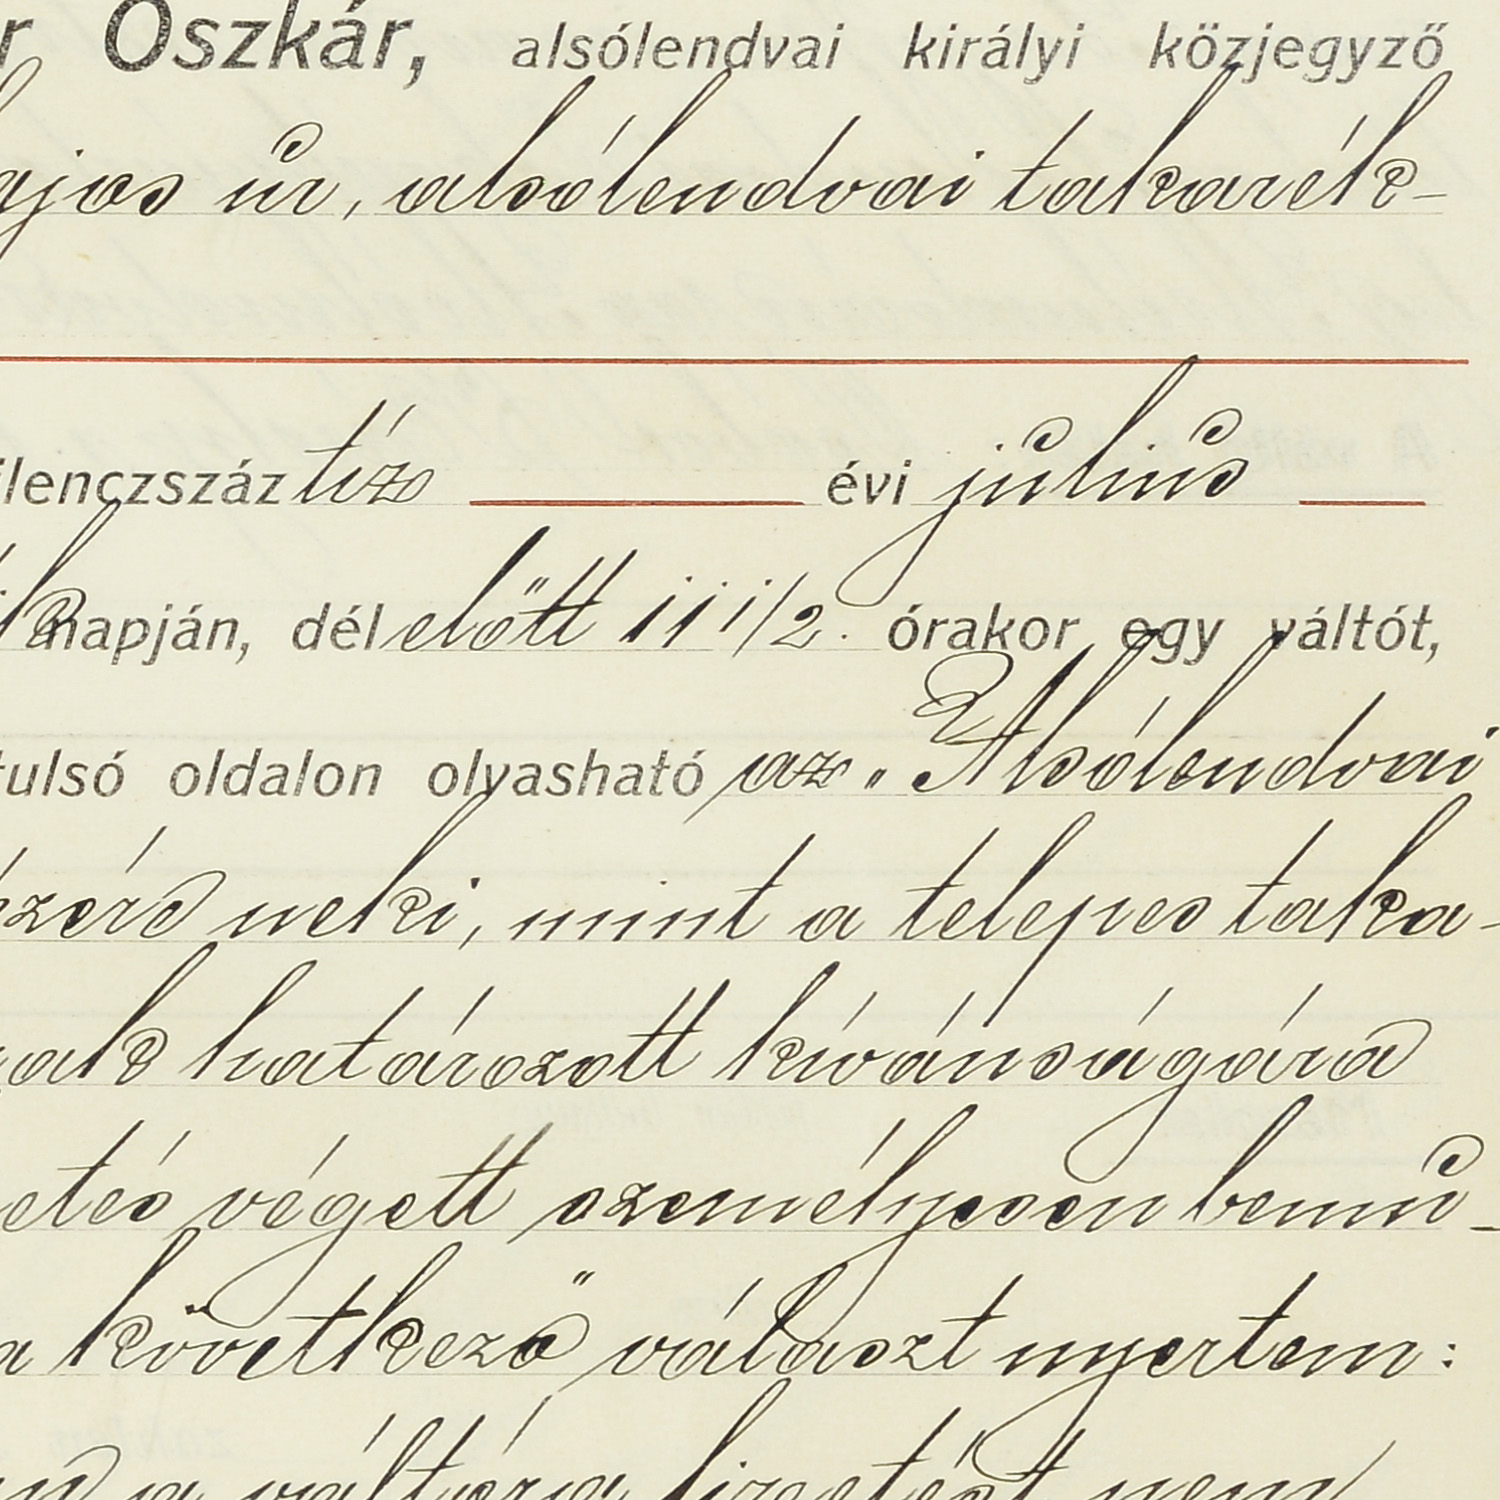 r Oszkár, alsólendvai királyi közjegyző
ajos úr, alsólendvai takarék-
ilenczszáz tíz évi július
k napján, dél előtt 11 1/2. órakor egy váltót,
tulsó oldalon olvasható az „Alsólendvai
ézérd neki, mint a telepes taka-
nak határozott kívánságára
etés végett személyesen bemu-
a következő választ nyertem:
a váltóra fizetést nem